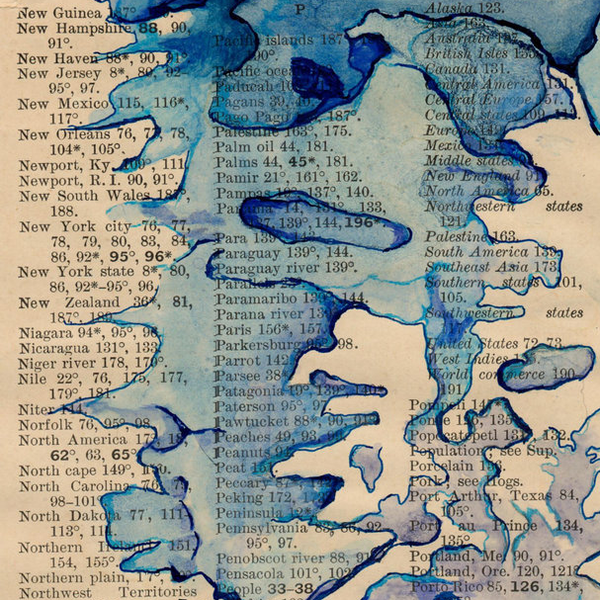 New Guinea
New Hampshire 88, 90,
91°.
New Haven 88*, 90, 91°
New Jersey 8*, 89, 92
95°, 97.
New Mexico 115, 116*,
117.
New Orleans 76, 77, 78,
104*, 105°.
Newport, Ky. 111
Newport, R. I. 90, 91°.
New South Wales
188.
New York city 76, 77,
78, 79, 80, 83, 84,
86, 92*, 95°, 96*.
New York state 8*, 80,
86, 92*-95°, 96,
New Zealand 36*, 81,
187°, 189.
Niagara 94*, 95°, 96
Nicaragua 131°, 133
Niger river 178, 179°.
Nile 22°, 76, 175, 177,
179°, 181.
Niter
Norfolk 76, 95°, 98.
North America
62°, 63, 65°
North cape 149°,
North Carolina 76,
98-101°
North Dakota 77, 111,
113°, 114
Northern Ireland 151,
154, 155°.
Northern plain,
Northwest Territories
P
Pacific islands 187
Pacific ocean
Paducah
Pagans 39, 40.
Pago Pago 187°.
Palestine 163°, 175.
Palm oil 44, 181.
Palms 44, 45*, 181.
Pamir 21°, 161°, 162.
Pampas 137°, 140.
Panama 14, 131°, 133,
137, 139°, 144, 196*
Para 139°
Paraguay 139°, 144.
Paraguay river 139°.
Paramaribo 139°, 144.
Parana river 139°
Paris 156*, 157
Parkersburg 95°, 98.
Parrot 142
Parsee 38
Patagonia 19°, 139°, 140°
Paterson 95°, 97
Pawtucket 88*, 90, 91°
Peaches 49, 93,
Peanuts
Peat
Peccary
Peking 172,
Peninsula 12
Pennsylvania 83, 86, 92
95°, 97.
Penobscot river 88, 91°
Pensacola 101°, 102
People 33-38
Alaska 123.
Asia 163
Australia
British Isles
Canada 131.
Central America 131.
Central Europe 157.
Central states 109,
Europe
Mexico
Middle states
New England
North America 65.
Northwestern states
121
Palestine 163
South America 139
Southeast Asia 173
Southern states 101,
105.
Southwestern states
United States 72, 73.
West Indies
World commerce 190,
191
Pompeii
Ponce 126, 135°
Popocatepetl 131°, 132.
Population, see Sup.
Porcelain
Pork, see Hogs.
Port Arthur, Texas 84,
105°.
Port au Prince 134,
135°
Portland, Me. 90, 91°.
Portland, Ore. 120, 121°
Porto Rico 85, 126, 134*,